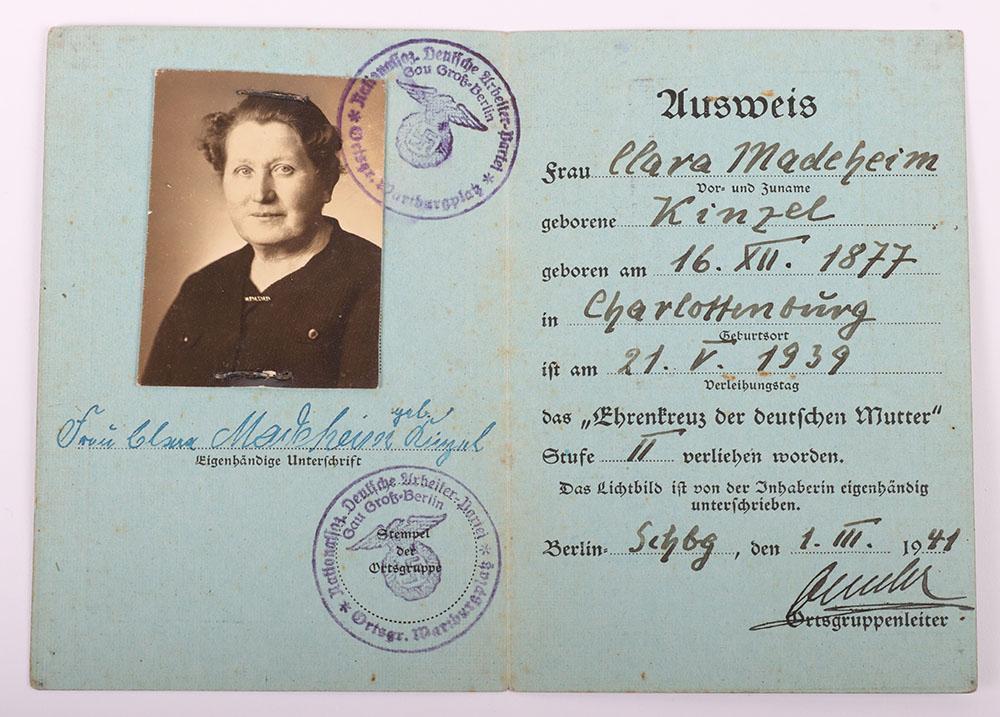 Nationalsoz. Deutsche Arbeiter-Partei
Gau Groß-Berlin
Ortsgr. Wartburgplatz
Frau Clara Madeheim geb. Kinzel
Eigenhändige Unterschrift
Nationalsoz. Deutsche Arbeiter-Partei
Gau Groß-Berlin
Stempel
der
Ortsgruppe
Ortsgr. Wartburgplatz
Ausweis
Frau Clara Madeheim
Vor- und Zuname
geborene Kinzel
geboren am 16. XII. 1877
in Charlottenburg
Geburtsort
ist am 21. V. 1939
Verleihungstag
das „Ehrenkreuz der deutschen Mutter“
Stufe II verliehen worden.
Das Lichtbild ist von der Inhaberin eigenhändig
unterschrieben.
Berlin- Schbg, den 1. III. 1941
Ortsgruppenleiter